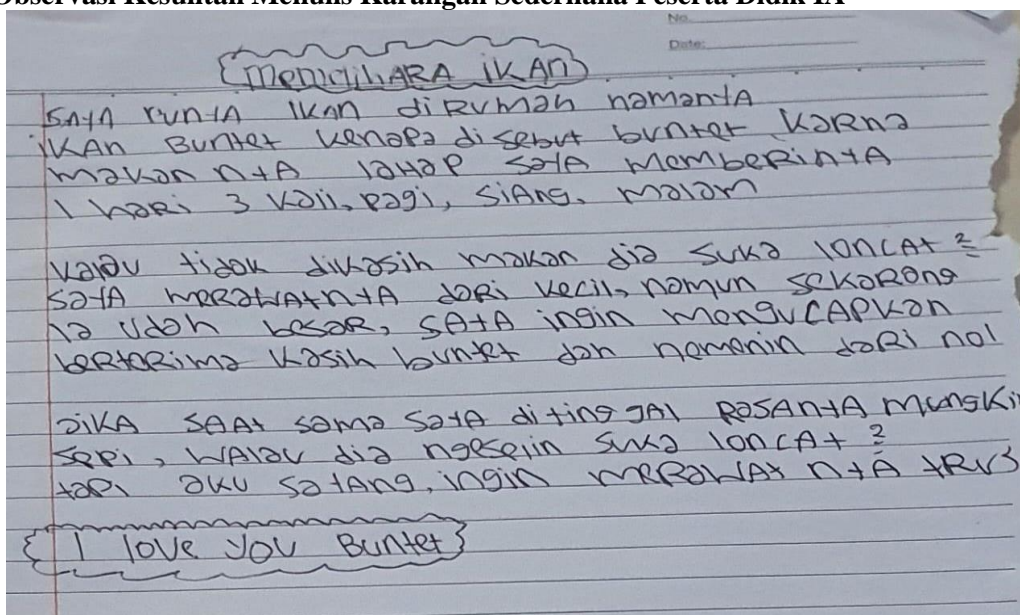 Observasi Kesulitan Menulis Karangan Sederhana Peserta Didik IX
No.
Date:
MEMELIHARA IKAN
SAYA PUNYA IKAN diRUMah namanYA
iKAN Buntet kenapa disebut buntet karna
makan nYA laHaP SaYA MemberinYA
1 haRi 3 kali, pagi, SiAng, malam
kalau tidak dikasih makan dia suka loncAt 2
saYA meRawAtnYA daRi kecil, namun seKarang
ia udah besaR, SAYA ingin menguCAPkan
beRteRima kasih buntet dah nemenin daRi nol
JiKA SAAt sama SaYA ditinggAl RaSAnYA mungKin
sepi, WAlau dia ngeselin suka loncAt 2
tapi aku saYAng, ingin meRawAt nYA tRus
I love you Buntet